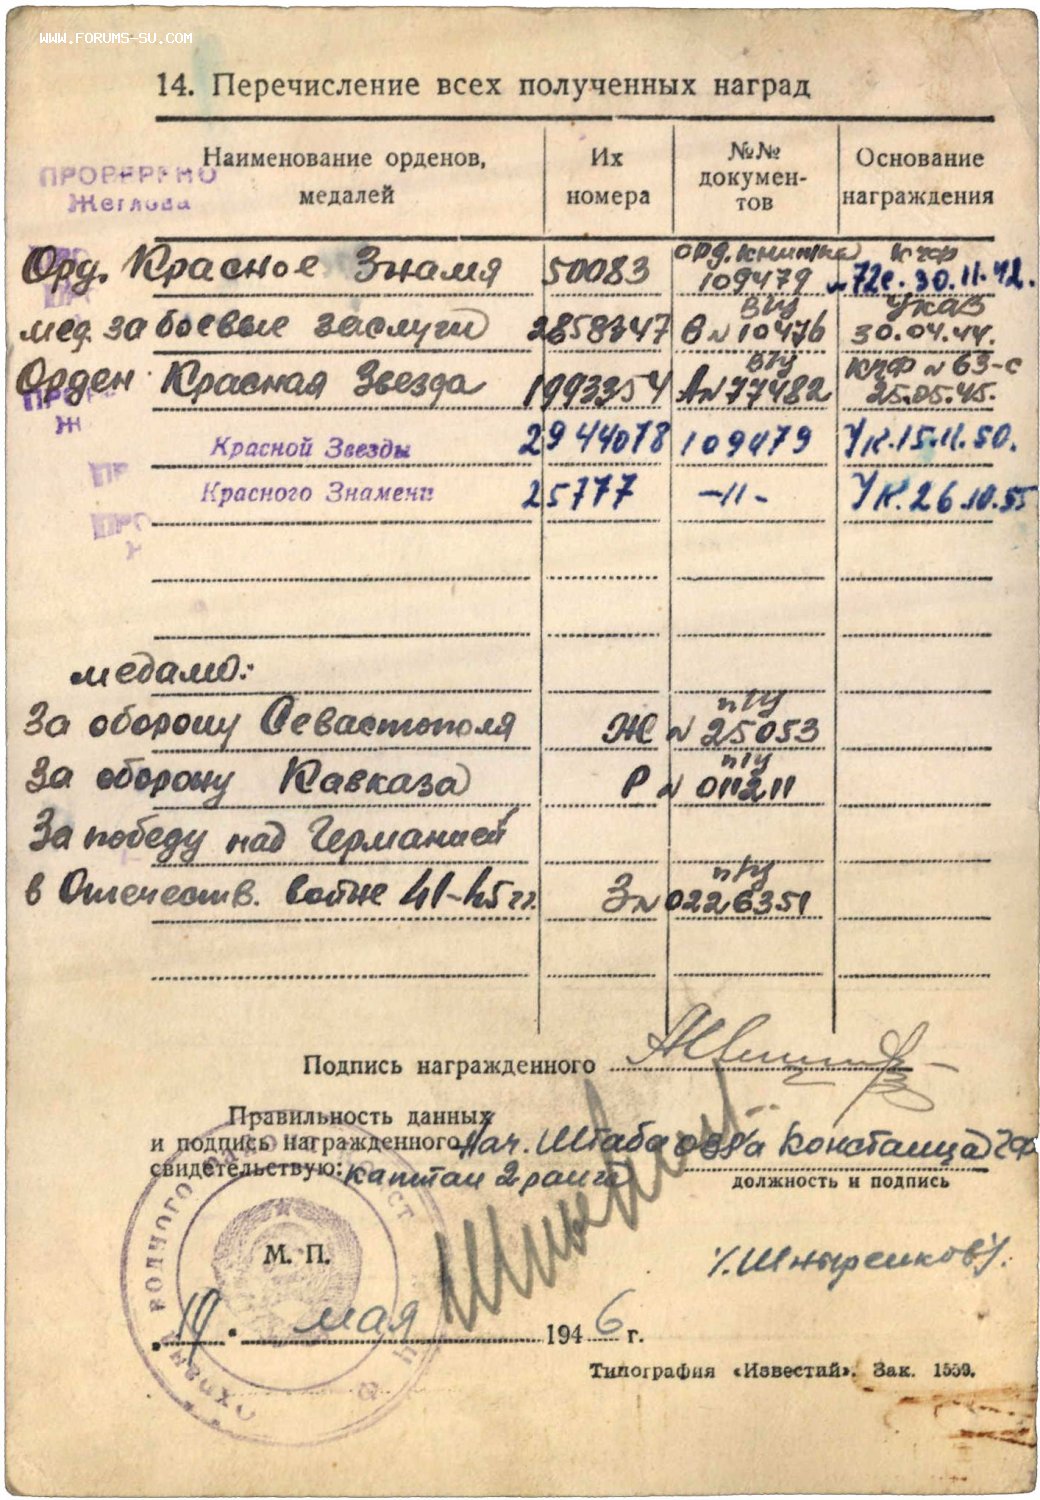 WWW.FORUMS-SU.COM
14. Перечисление всех полученных наград
Наименование орденов, медалей
Их номера
№№ докумен-тов
Основание награждения
ПРОВЕРЕНО
Жеглова
Орд. Красное Знамя 50083 орд. книжка 109479 КЧФ 72с. 30.11.42.
мед. за боевые заслуги 2858347 В/у В № 10476 Указ 30.04.44.
Орден Красная Звезда 1993354 В/у А № 77482 КЧФ № 63-с 25.05.45.
Красной Звезды 2944078 109479 Ук. 15.11.50.
Красного Знамени 25777 -11- Ук. 26.10.55
медали:
За оборону Севастополя Ж № 25053
За оборону Кавказа Р № 011211
За победу над Германией
в Отечеств. войне 41-45 гг. З № 0226351
Подпись награжденного
Правильность данных
и подпись награжденного Нач. Штаба ОВР'а Констанца ЧФ
свидетельствую: капитан 2 ранга
должность и подпись
/. Шныренков /.
М. П.
"19" мая 1946 г.
Типография «Известий». Зак. 1559.